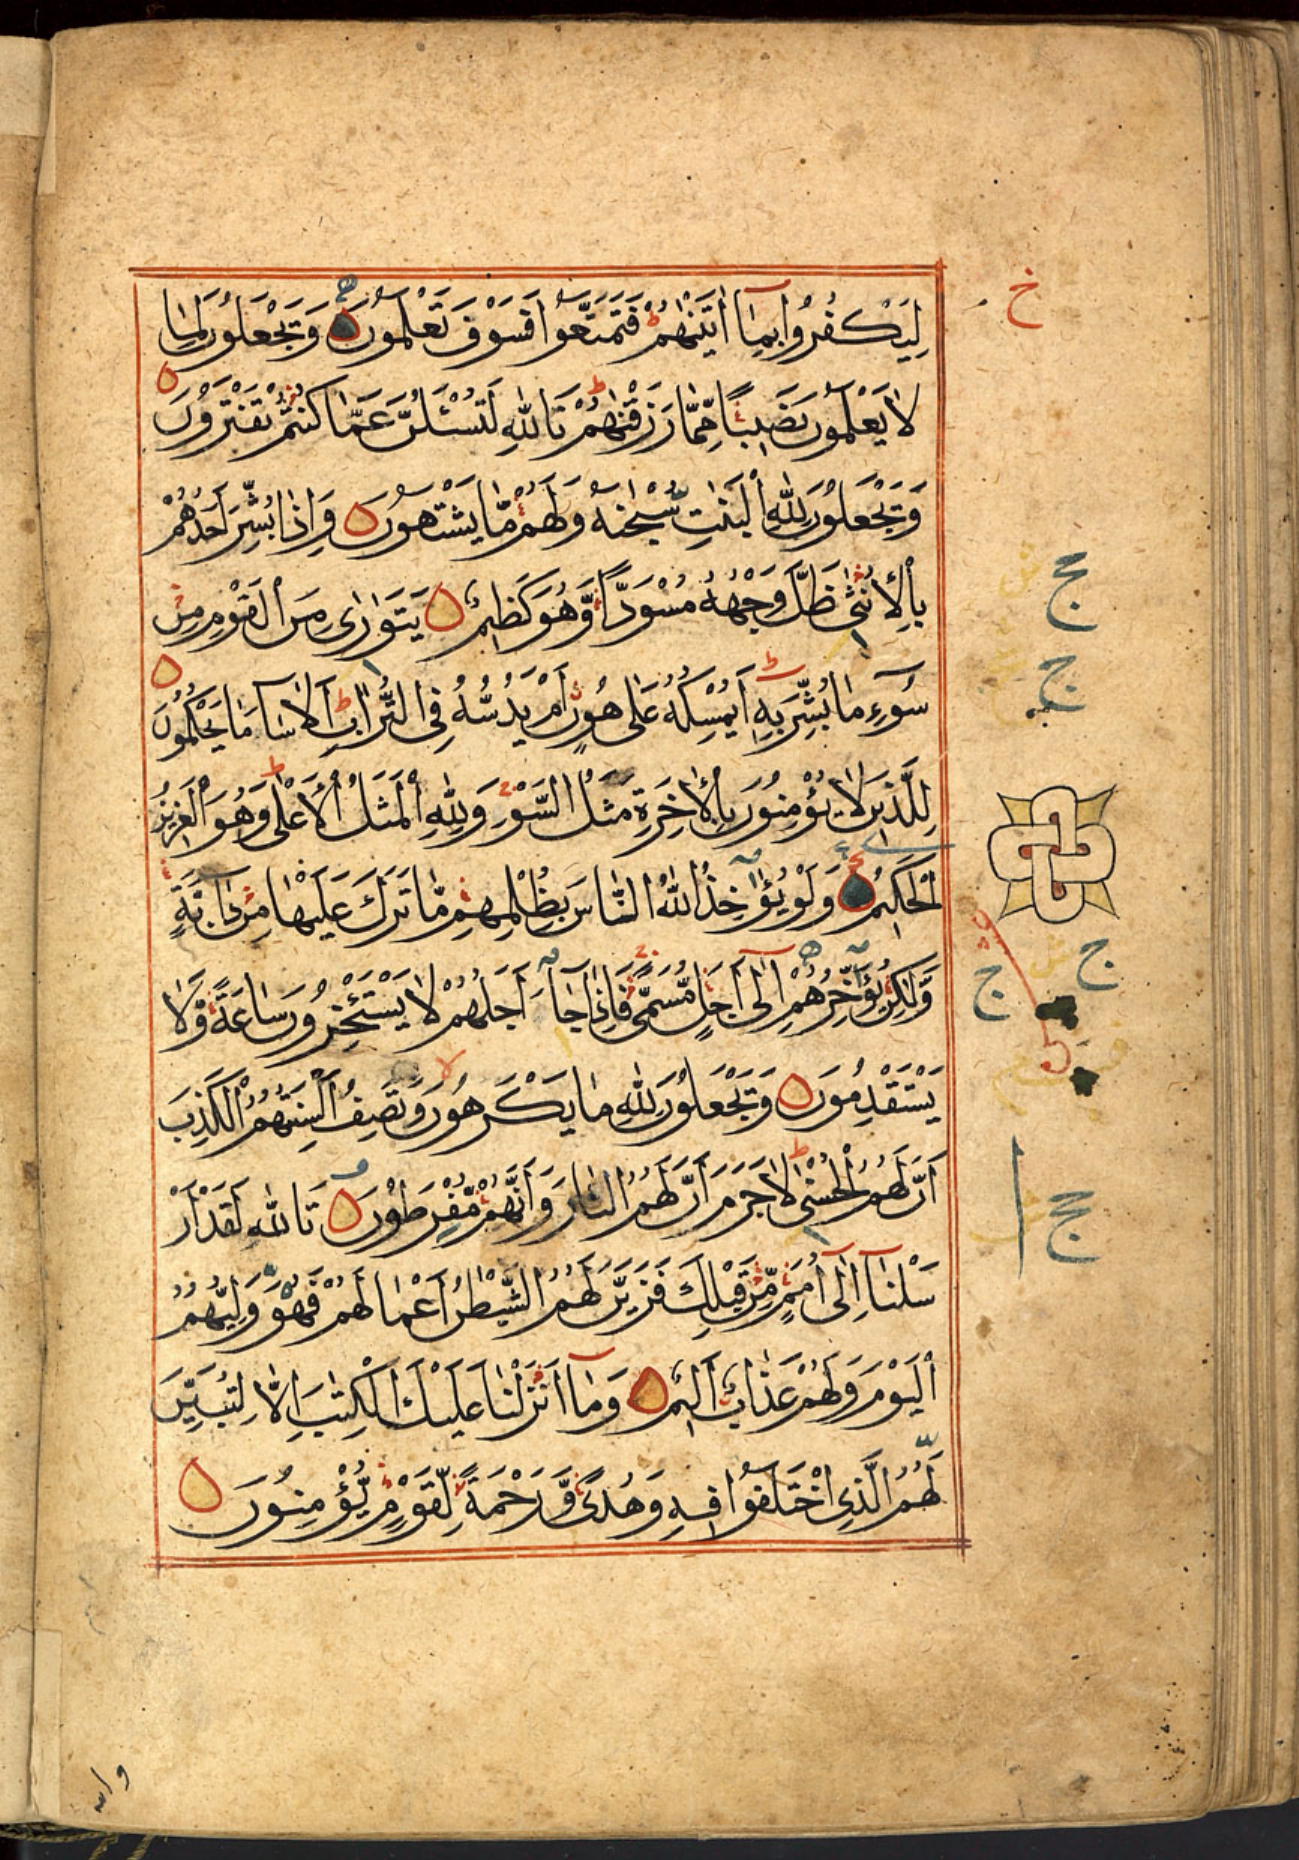 خ
لِيَكْفُرُوا بِمَا اٰتَيْنٰهُمْ فَتَمَتَّعُوا فَسَوْفَ تَعْلَمُونَ وَيَجْعَلُونَ لِمَا
لَا يَعْلَمُونَ نَصِيبًا مِّمَّا رَزَقْنٰهُمْ تَاللّٰهِ لَتُسْـَٔلُنَّ عَمَّا كُنْتُمْ تَفْتَرُونَ
وَيَجْعَلُونَ لِلّٰهِ الْبَنٰتِ سُبْحٰنَهُ وَلَهُمْ مَّا يَشْتَهُونَ وَاِذَا بُشِّرَ اَحَدُهُمْ
بِالْاُنْثٰى ظَلَّ وَجْهُهُ مُسْوَدًّا وَّهُوَ كَظِيمٌ يَتَوَارٰى مِنَ الْقَوْمِ مِنْ
سُوٓءِ مَا بُشِّرَ بِهِ اَيُمْسِكُهُ عَلٰى هُونٍ اَمْ يَدُسُّهُ فِي التُّرَابِ اَلَا سَآءَ مَا يَحْكُمُونَ
لِلَّذِينَ لَا يُؤْمِنُونَ بِالْاٰخِرَةِ مَثَلُ السَّوْءِ وَلِلّٰهِ الْمَثَلُ الْاَعْلٰى وَهُوَ الْعَزِيزُ
الْحَكِيمُ وَلَوْ يُؤَاخِذُ اللّٰهُ النَّاسَ بِظُلْمِهِمْ مَّا تَرَكَ عَلَيْهَا مِنْ دَآبَّةٍ
وَّلٰكِنْ يُؤَخِّرُهُمْ اِلٰى اَجَلٍ مُّسَمًّى فَاِذَا جَآءَ اَجَلُهُمْ لَا يَسْتَـْٔخِرُونَ سَاعَةً وَّلَا
يَسْتَقْدِمُونَ وَيَجْعَلُونَ لِلّٰهِ مَا يَكْرَهُونَ وَتَصِفُ اَلْسِنَتُهُمُ الْكَذِبَ
اَنَّ لَهُمُ الْحُسْنٰى لَا جَرَمَ اَنَّ لَهُمُ النَّارَ وَاَنَّهُمْ مُّفْرَطُونَ تَاللّٰهِ لَقَدْ اَرْ
سَلْنَا اِلٰى اُمَمٍ مِّنْ قَبْلِكَ فَزَيَّنَ لَهُمُ الشَّيْطٰنُ اَعْمَالَهُمْ فَهُوَ وَلِيُّهُمُ
الْيَوْمَ وَلَهُمْ عَذَابٌ اَلِيمٌ وَمَا اَنْزَلْنَا عَلَيْكَ الْكِتٰبَ اِلَّا لِتُبَيِّنَ
لَهُمُ الَّذِي اخْتَلَفُوا فِيهِ وَهُدًى وَّرَحْمَةً لِّقَوْمٍ يُّؤْمِنُونَ
والله